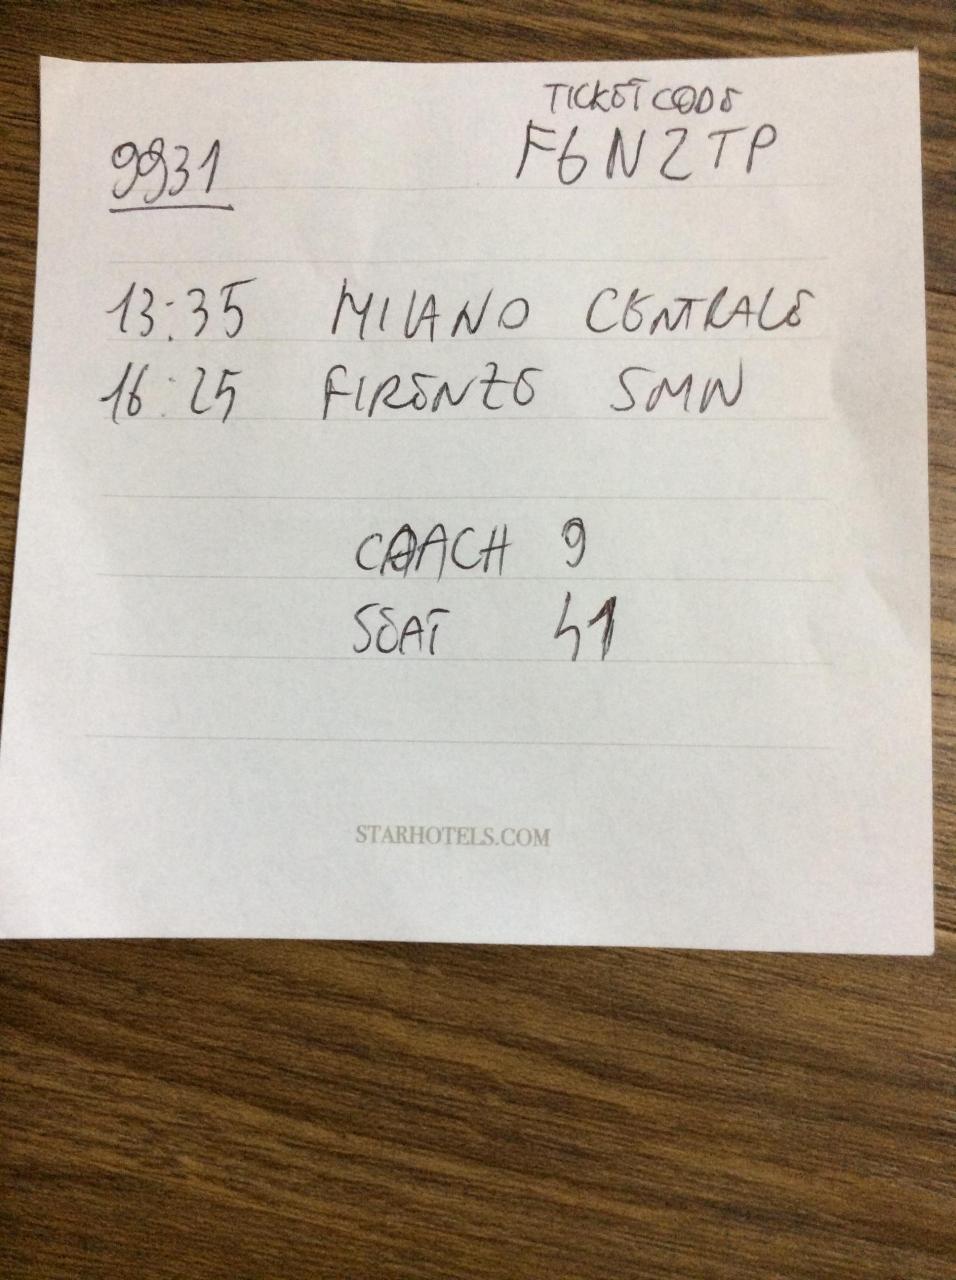 TICKET CODE
9931 F6NZTP
13:35 MILANO CENTRALE
16:25 FIRENZE SMN
COACH 9
SEAT 41
STARHOTELS.COM